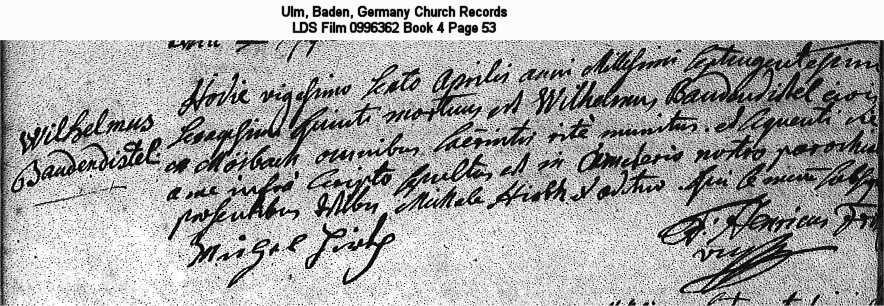 Ulm, Baden, Germany Church Records
LDS Film 0996362 Book 4 Page 53
Wilhelmus
Baudendistel
Hodie vigesimo sexto Aprilis anni Millesimi Septingentesimi
Sexagesimi quinti mortuus est Wilhelmus Baudendistel
ex Mösbach omnibus sacris ritè munitus. et sequenti die
a me infrà scripto sepultus est in Cemeterio nostro parochi
praesentibus testibus Michale Hirth et aedituo qui
Michel Hirth
F. Henricus